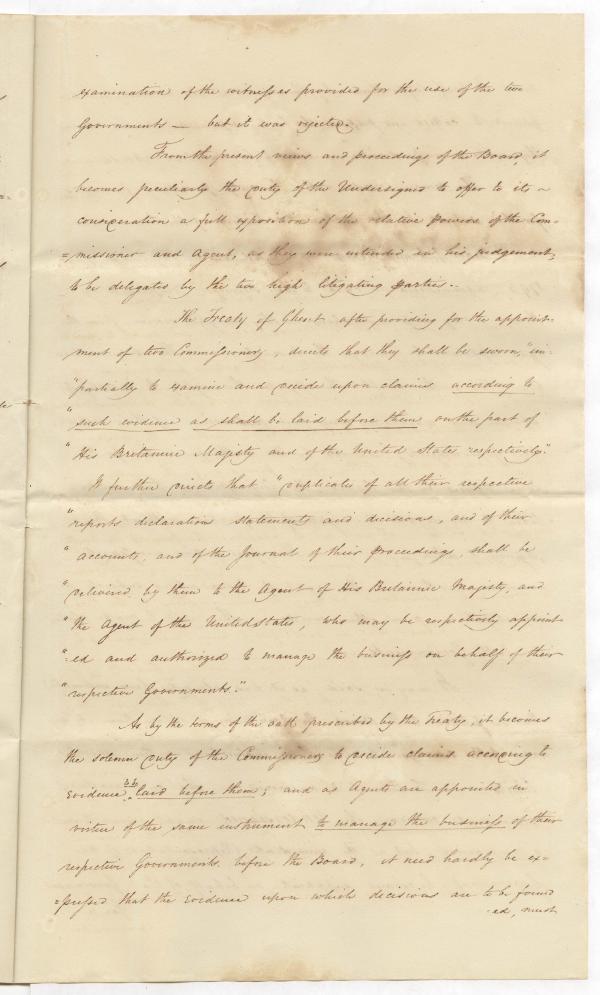 examination of the witnesses provided for the use of the two
Governments — but it was rejected.
From the present views and proceedings of the Board, it
becomes peculiarly the duty of the Undersigned to offer to its
consideration a full exposition of the relative powers of the Com=
=missioner and Agent, as they were intended in his judgement,
to be delegated by the two high litigating parties.
The Treaty of Ghent after providing for the appoint-
ment of two Commissioners, directs that they shall be sworn, "im-
"partially to examine and decide upon claims according to
"such evidence as shall be laid before them on the part of
"His Britannic Majesty and of the United States respectively."
It further directs that "duplicates of all their respective
"reports declarations statements and decisions, and of their
"accounts, and of the Journal of their proceedings, shall be
"delivered by them to the Agent of His Britannic Majesty, and
"the Agent of the United States, who may be respectively appoint
"-ed and authorized to manage the business on behalf of their
"respective Governments."
As by the terms of the oath prescribed by the Treaty, it becomes
the solemn duty of the Commissioners to decide claims according to
evidence to be laid before them; and as Agents are appointed in
virtue of the same instrument to manage the business of their
respective Governments before the Board, it need hardly be ex=
=pressed that the evidence upon which decisions are to be found
-ed, must